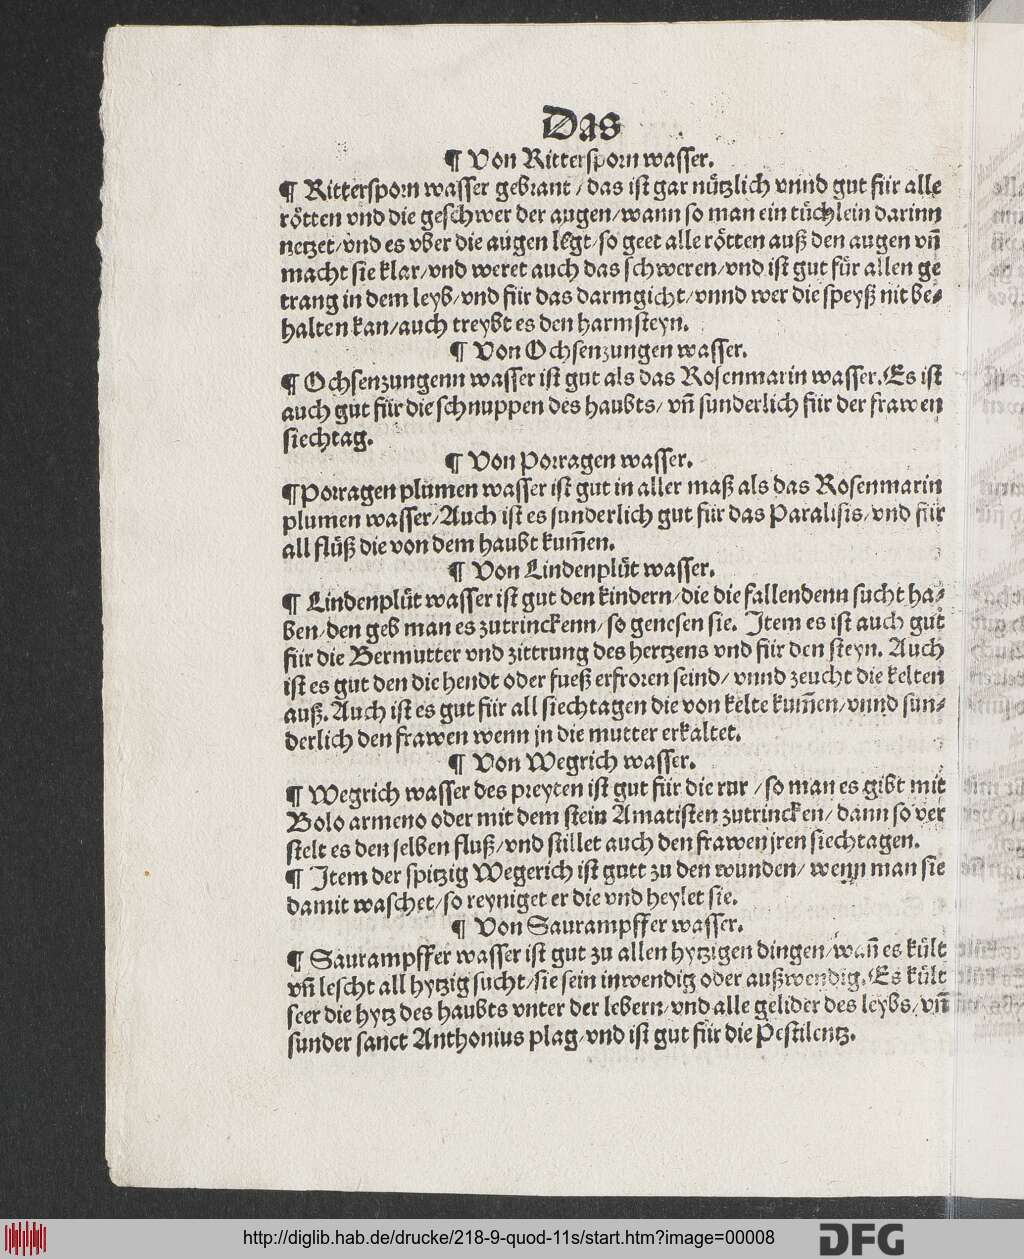 Das
¶ Von Rittersporn wasser.
¶ Rittersporn wasser gebrant / das ist gar nützlich vnnd gut für alle
rötten vnd die geschwer der augen/wann so man ein tüchlein darinn
netzet/vnd es vber die augen legt/so geet alle rötten auß den augen vn̄
macht sie klar/vnd weret auch das schweren/vnd ist gut für allen ge
trang in dem leyb/vnd für das darmgicht/vnnd wer die speyß nit be⸗
halten kan/auch treybt es den harmsteyn.
¶ Von Ochsenzungen wasser.
¶ Ochsenzungenn wasser ist gut als das Rosenmarin wasser. Es ist
auch gut für die schnuppen des haubts/ vn̄ sunderlich für der frawen
siechtag.
¶ Von Porragen wasser.
¶ Porragen plumen wasser ist gut in aller maß als das Rosenmarin
plumen wasser/Auch ist es sunderlich gut für das Paralisis/vnd für
all flüß die von dem haubt kum̄en.
¶ Von Lindenplüt wasser.
¶ Lindenplüt wasser ist gut den kindern/die die fallendenn sucht ha⸗
ben/den geb man es zutrinckenn/so genesen sie. Item es ist auch gut
für die Bermutter vnd zittrung des hertzens vnd für den steyn. Auch
ist es gut den die hendt oder fueß erfroren seind/ vnnd zeucht die kelten
auß. Auch ist es gut für all siechtagen die von kelte kum̄en/vnnd sun⸗
derlich den frawen wenn jn die mutter erkaltet.
¶ Von Wegrich wasser.
¶ Wegrich wasser des preyten ist gut für die rur / so man es gibt mit
Bolo armeno oder mit dem stein Amatisten zutrincken/ dann so ver
stelt es den selben fluß/vnd stillet auch den frawen jren siechtagen.
¶ Item der spitzig Wegerich ist gutt zu den wunden/ wenn man sie
damit waschet/so reyniget er die vnd heylet sie.
¶ Von Saurampffer wasser.
¶ Saurampffer wasser ist gut zu allen hytzigen dingen/wan̄ es kült
vn̄ lescht all hytzig sucht/sie sein inwendig oder außwendig. Es kült
seer die hytz des haubts vnter der lebern/vnd alle gelider des leybs/vn̄
sunder sanct Anthonius plag/vnd ist gut für die Pestilentz.
http://diglib.hab.de/drucke/218-9-quod-11s/start.htm?image=00008
DFG